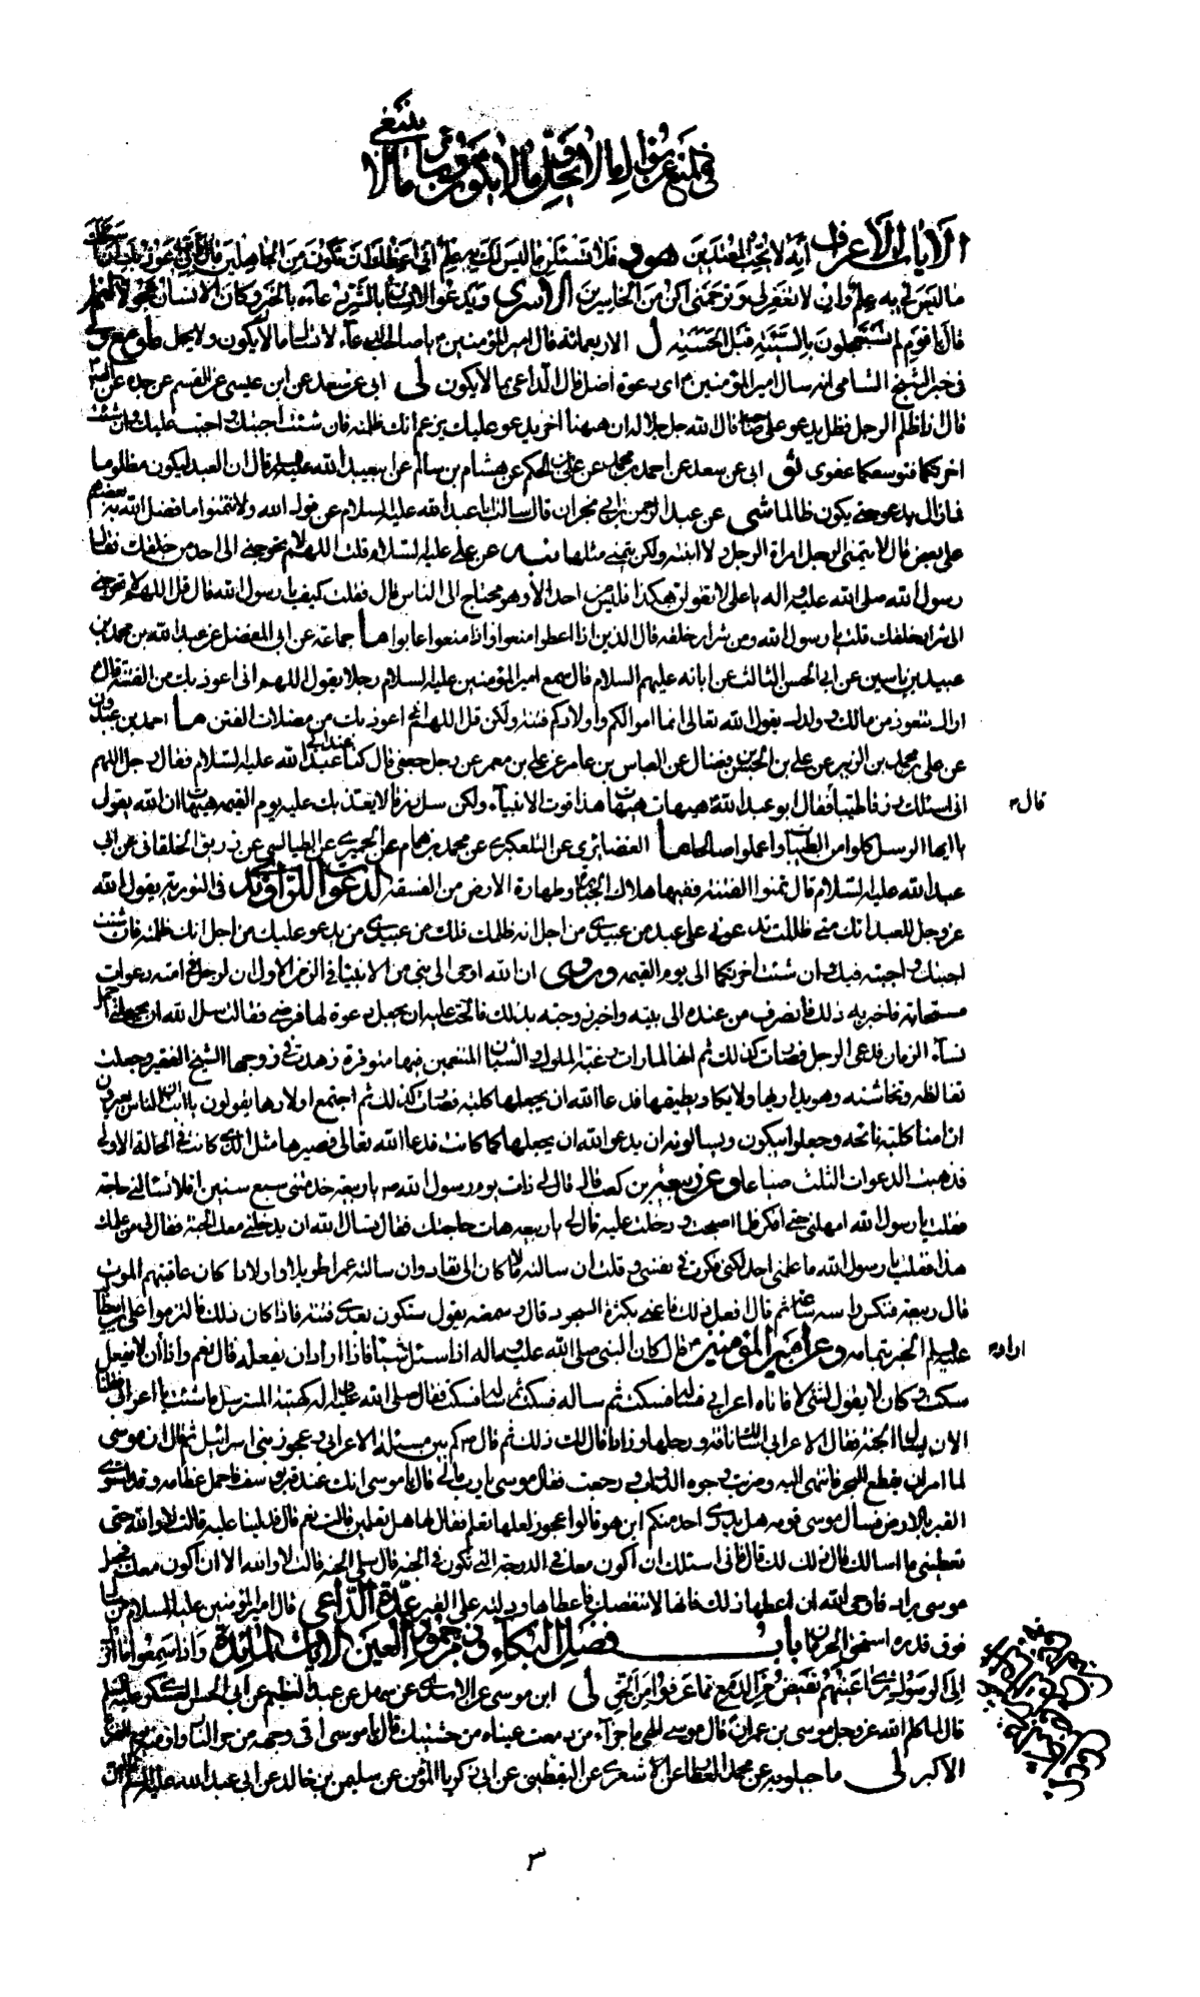 في المنع عن سؤال ما لا يحل وما لا يكون وما لا ينبغي
الآيات الأعراف إنه لا يحب المعتدين هود فلا تسئلن ما ليس لك به علم إني أعظك أن تكون من الجاهلين قال رب إني أعوذ بك أن أسئلك
ما ليس لي به علم وإن لا تغفر لي وترحمني أكن من الخاسرين الأسرى ويدع الإنسان بالشر دعاءه بالخير وكان الإنسان عجولا النمل
قال يا قوم لم تستعجلون بالسيئة قبل الحسنة ل الأربعمائة قال أمير المؤمنين يا صاحب الدعاء لا تسأل ما لا يكون ولا يحل
في خبر الشيخ الشامي أنه سأل أمير المؤمنين أي دعوة أضل قال الداعي بما لا يكون لي أبي عن سعد عن ابن عيسى عن القسم عن جده عن
قال إذا ظلم الرجل فظل يدعو على صاحبه قال الله جل جلاله إن ههنا آخر يدعو عليك يزعم أنك ظلمته فإن شئت أجبتك وأجبت عليك وإن شئت
أخرتكما فتوسعكما عفوي ثو أبي عن سعد عن أحمد بن محمد عن علي بن الحكم عن هشام بن سالم عن أبي عبد الله عليه السلام قال إن العبد ليكون مظلوما
فما زال يدعو حتى يكون ظالما شي عن عبد الرحمن بن أبي نجران قال سألت أبا عبد الله عليه السلام عن قول الله ولا تتمنوا ما فضل الله به بعضكم
على بعض قال لا يتمنى الرجل امرأة الرجل ولا ابنته ولكن يتمنى مثلها عن علي عليه السلام قلت اللهم لا تحوجني إلى أحد من خلقك فقال
رسول الله صلى الله عليه وآله يا علي لا تقولن هكذا فليس أحد إلا وهو محتاج إلى الناس قال فقلت كيف يا رسول الله قال قل اللهم لا تحوجني
إلى شرار خلقك قلت يا رسول الله ومن شرار خلقه قال الذين إذا أعطوا منعوا وإذا منعوا عابوا ما جماعة عن أبي المفضل عن عبد الله بن محمد بن
عبيد بن ياسين عن أبي الحسن الثالث عن آبائه عليهم السلام قال سمع أمير المؤمنين عليه السلام رجلا يقول اللهم إني أعوذ بك من الفتنة قال
أراك تتعوذ من مالك وولدك يقول الله تعالى إنما أموالكم وأولادكم فتنة ولكن قل اللهم إني أعوذ بك من مضلات الفتن ما أحمد بن عبدون
عن علي بن محمد بن الزبير عن علي بن الحسن بن فضال عن العباس بن عامر عن علي بن معمر عن رجل جعفي قال كنا عند أبي عبد الله عليه السلام فقال رجل اللهم
إني أسئلك رزقا طيبا فقال أبو عبد الله هيهات هيهات هذا قوت الأنبياء ولكن سل رزقا لا يعذبك عليه يوم القيمة هيهات إن الله يقول
قال
يا أيها الرسل كلوا من الطيبات واعملوا صالحا ما الغضائري عن التلعكبري عن محمد بن همام عن الحميري عن الطيالسي عن زريق الخلقاني عن أبي
عبد الله عليه السلام قال تمنوا الفتنة ففيها هلاك الجبابرة وطهارة الأرض من الفسقة دعوات الراوندي في التورية يقول الله
عز وجل للعبد إنك متى ظللت تدعوني على عبد من عبيدي من أجل أنه ظلمك فلك من عبيدي من يدعو عليك من أجل أنك ظلمته فإن شئت
أجبتك وأجبته فيك وإن شئت أخرتكما إلى يوم القيمة وروي أن الله أوحى إلى نبي من الأنبياء في الزمن الأول أن لرجل في أمته دعوات
مستجابة فأخبر به ذلك فانصرف من عنده إلى بيته وأخبر زوجته بذلك فألحت عليه أن يجعل دعوة لها فرضي فقالت سل الله أن يجعلني أجمل
نساء الزمان فدعى الرجل فصارت كذلك ثم إنها لما رأت رغبة الملوك والشبان المتنعمين فيها متوفرة زهدت في زوجها الشيخ الفقير وجعلت
تغالظه وتخاشنه وهو يداريها ولا يكاد يطيقها فدعا الله أن يجعلها كلبة فصارت كذلك ثم اجتمع أولادها يقولون يا أبت إن الناس يعيرون
أن أمنا كلبة نائحة وجعلوا يبكون ويسألونه أن يدعو الله أن يجعلها كما كانت فدعا الله تعالى فصيرها مثل الذي كانت في الحالة الأولى
فذهبت الدعوات الثلث ضياعا وعن ربيعة بن كعب قال قال لي ذات يوم رسول الله يا ربيعة خدمتني سبع سنين أفلا تسألني حاجة
فقلت يا رسول الله أمهلني حتى أفكر فلما أصبحت ودخلت عليه قال لي يا ربيعة هات حاجتك فقلت تسأل الله أن يدخلني معك الجنة فقال لي من علمك
هذا فقلت يا رسول الله ما علمني أحد لكني فكرت في نفسي وقلت إن سألته مالا كان إلى نفاد وإن سألته عمرا طويلا وأولادا كان عاقبتهم الموت
قال ربيعة فنكس رأسه ساعة ثم قال أفعل ذلك فأعني بكثرة السجود قال وسمعته يقول ستكون بعدي فتنة فإذا كان ذلك فالتزموا علي بن أبي طالب
عليه السلام الخبر بتمامه وعن أمير المؤمنين قال كان النبي صلى الله عليه وآله إذا سئل شيئا فإذا أراد أن يفعله قال نعم وإذا أراد أن لا يفعل
أراد
سكت وكان لا يقول لشيء لا فأتاه أعرابي فسأله فسكت ثم سأله فسكت ثم سأله فسكت فقال صلى الله عليه وآله كهيئة المسترسل ما شئت يا أعرابي فقلنا
الآن يسأل الجنة فقال الأعرابي أسألك ناقة ورحلها وزادا قال لك ذلك ثم قال كم بين مسئلة الأعرابي وعجوز بني إسرائيل ثم قال إن موسى
لما أمر أن يقطع البحر فانتهى إليه وضربت وجوه الدواب رجعت فقال موسى يا رب مالي قال يا موسى إنك عند قبر يوسف فاحمل عظامه وقد استوى
القبر بالأرض فسأل موسى قومه هل يدري أحد منكم أين هو قالوا عجوز لعلها تعلم فقال لها هل تعلمين قالت نعم قال فدلينا عليه قالت لا والله حتى
تعطيني ما أسألك قال ذلك لك قالت فإني أسئلك أن أكون معك في الدرجة التي تكون في الجنة قال سلي الجنة قالت لا والله إلا أن أكون معك فجعل
موسى يراد فأوحى الله أن أعطها ذلك فإنها لا تنقصك فأعطاها ودلته على القبر عدة الداعي قال أمير المؤمنين عليه السلام من سأل
فوق قدره استحق الحرمان باب فضل البكاء وذم جمود العين الآيات المائدة وإذا سمعوا ما أنزل
إلى الرسول ترى أعينهم تفيض من الدمع مما عرفوا من الحق لي ابن موسى عن الأسدي عن سهل عن عبد العظيم عن أبي الحسن العسكري عليه السلام
قال لما كلم الله عز وجل موسى بن عمران قال موسى إلهي ما جزاء من دمعت عيناه من خشيتك قال يا موسى أقي وجهه من حر النار وأومنه يوم الفزع
الأكبر لي ماجيلويه عن محمد العطار عن الأشعري عن اليقطيني عن أبي زكريا المؤمن عن سليمن بن خالد عن أبي عبد الله عليه السلام
٣